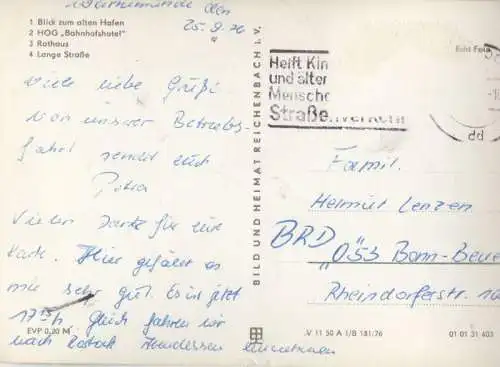 Warnemünde den
25.9.76
1 Blick zum alten Hafen
2 HOG „Bahnhofshotel“
3 Rathaus
4 Lange Straße
Viele liebe Grüße
von unserer Betriebs-
fahrt sendet euch
Petra
Vielen Dank für eure
Karte. Hier gefällt es
mir sehr gut. Es ist jetzt
17 15 h Gleich fahren wir
nach Rostock
EVP 0,20 M
BILD UND HEIMAT REICHENBACH I. V.
Echt Foto
Helft Kin
und älter
Mensche
Straßenverkehr
Famil.
Helmut Lenzen
BRD „053 Bonn-Beue
Rheindorferstr.
V 11 50 A I/B 181/76
01 01 31 403